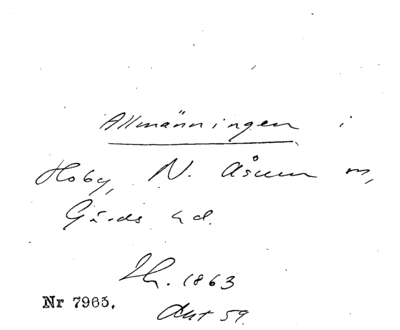 Allmänningen i
Hoby, N. Åsum sn,
Gärds hd.
Lh. 1863
Nr 7965. Akt 59.